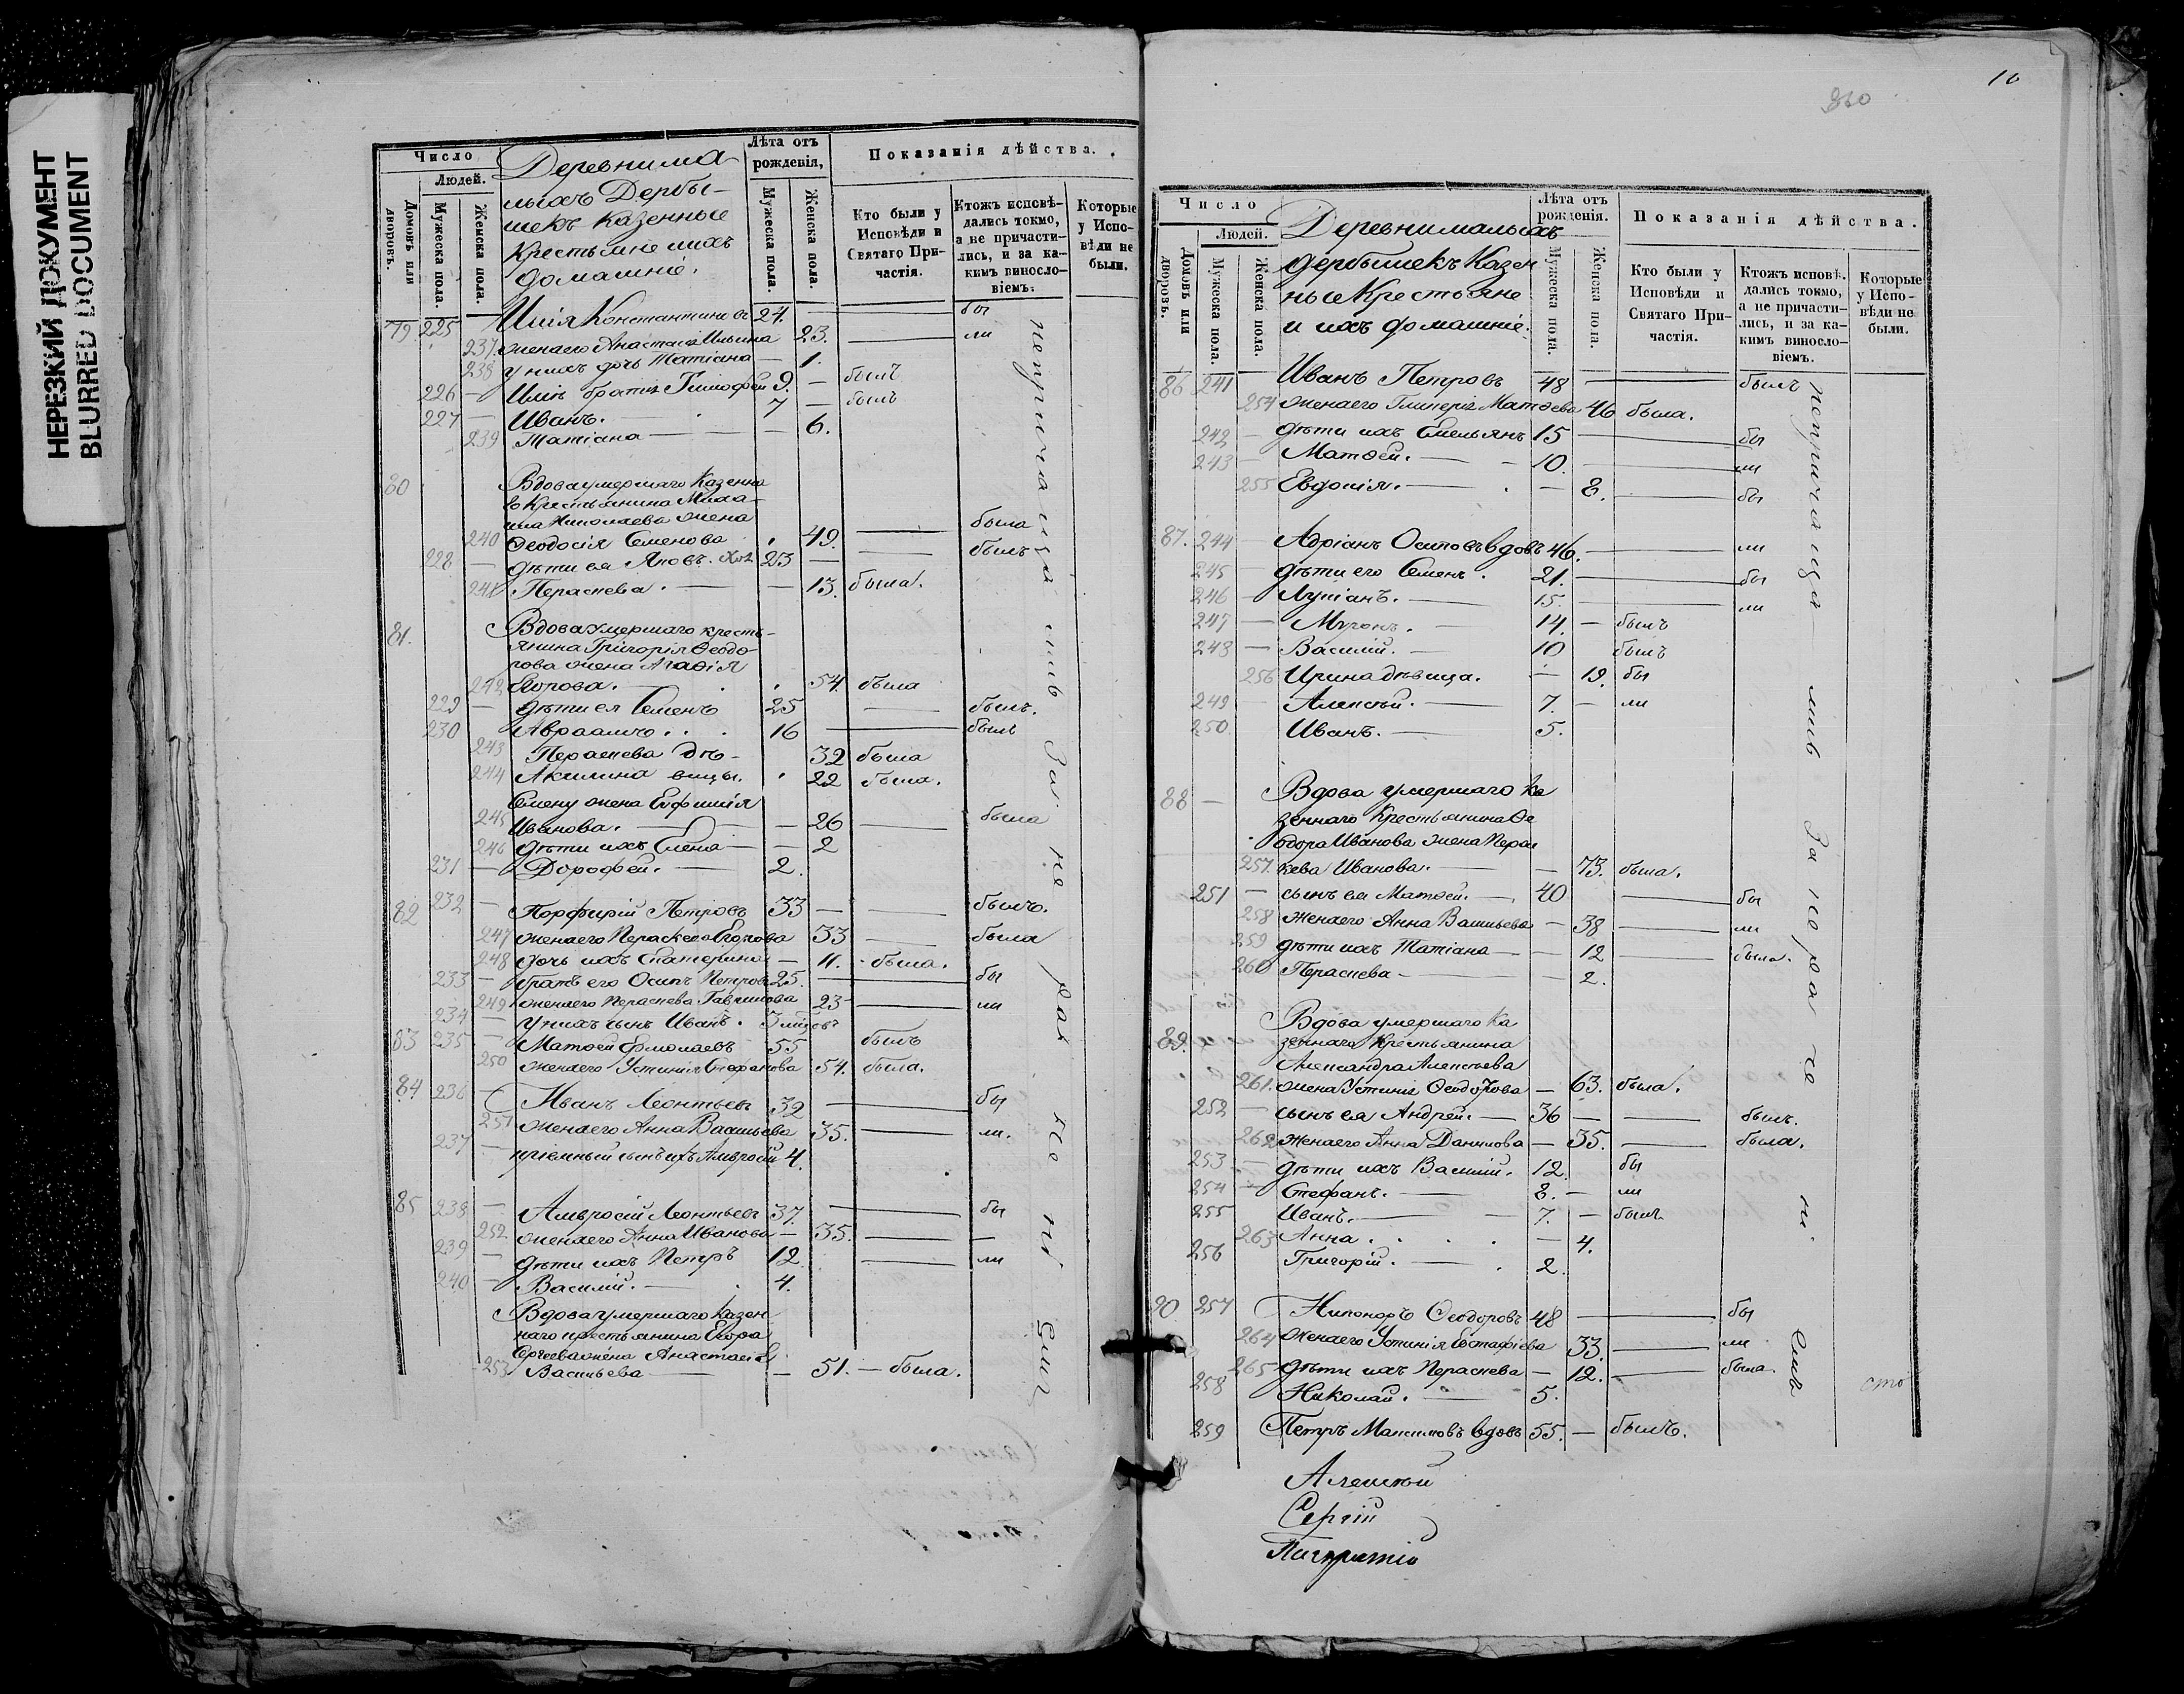 НЕРЕЗКИЙ ДОКУМЕНТ
BLURRED DOCUMENT
Число
Людей.
Домовъ или дворовъ.
Мужеска пола.
Женска пола.
Деревни ма-
лыхъ Дербы-
шекъ казенные
Крестьяне и ихъ
домашніе.
Лѣта отъ
рожденія,
Мужеска пола.
Женска пола.
Показанія дѣйства.
Кто были у
Исповѣди и
Святаго При-
частія.
Ктожъ исповѣ-
дались токмо,
а не причасти-
лись, и за ка-
кимъ винносло-
віемъ.
Которые
у Испо-
вѣди не
были.
79 225 Илія Константиновъ 24. бы
237. жена его Анастасія Ильина 23. ли
238 у нихъ дочь Татіана 1.
226 Иліи братья Тимофей 9. былъ
227 Иванъ. 7 былъ
239 Татіана 6.
80 Вдова умершаго казенна
го Крестьянина Миха-
ила Николаева жена
240 Ѳеодосія Семенова 49. была
228 дѣти ея Яковъ. хол. 23 былъ
241 Параскева. 13. была.
81. Вдова умершаго кресть-
янина Григорія Ѳеодо-
рова жена Агафія
242 Егорова. 54. была
229 дѣти ея Семенъ 25 былъ.
230 Авраамъ. 16 былъ
243 Параскева дѣ- 32 была
244 Акилина вицы. 22 была.
Семену жена Евфимія
245 Иванова. 26 была
246 дѣти ихъ Елена 2
231 Дорофей. 2.
82 232 Порфирій Петровъ 33 былъ.
247 жена его Параскева Егорова 33 была
248 дочь ихъ Екатерина 11. была.
233 братъ его Осипъ Петровъ 25. бы
249 жена его Параскева Гаврилова 23 ли
234 у нихъ сынъ Иванъ. 3 мѣсяцовъ
83 235 Матѳей Ермолаевъ 55 былъ
250 жена его Устинія Стефанова 54. была.
84 236 Иванъ Леонтьевъ 32 бы
251 жена его Анна Васильева 35. ли.
237 пріемный сынъ ихъ Амвросій 4.
85 238 Амвросій Леонтьевъ 37. бы
252 жена его Анна Иванова 35.
239 дѣти ихъ Петръ 12 ли
240 Василій. 4.
Вдова умершаго казен-
наго крестьянина Егора
Сергеева жена Анастасія
253 Васильева 51. была.
10
Число
Людей.
Домовъ или дворовъ.
Мужеска пола.
Женска пола.
Деревни малыхъ
дербышекъ Казен
ные Крестьяне
и ихъ домашніе.
Лѣта отъ
рожденія.
Мужеска пола.
Женска пола.
Показанія дѣйства.
Кто были у
Исповѣди и
Святаго При-
частія.
Ктожъ исповѣ-
дались токмо,
а не причасти-
лись, и за ка-
кимъ винносло-
віемъ.
Которые
у Испо-
вѣди не
были.
86 241 Иванъ Петровъ 48 былъ
254 жена его Гликерія Матѳева 46 была.
242 дѣти ихъ Емельянъ 15 бы
243 Матѳей. 10. ли
255 Евдокія. 8. бы
87. 244 Адріанъ Осиповъ вдовъ 46. ли
245 дѣти его Семенъ. 21. бы
246 Лукіанъ. 15. ли
247 Миронъ. 14. былъ
248 Василій. 10 былъ
256 Ирина дѣвица. 19. бы
249 Алексѣй. 7. ли
250 Иванъ. 5.
88 Вдова умершаго ка
зеннаго Крестьянина Ѳе
одора Иванова жена Парас
257. кева Иванова. 73. была.
251 сынъ ея Матѳей. 40 бы
258 жена его Анна Васильева 38 ли
259 дѣти ихъ Татіана 12 была.
260 Параскева 2.
89. Вдова умершаго ка
зеннаго Крестьянина
Александра Алексѣева
261. жена Устинія Ѳеодорова 63. была.
252 сынъ ея Андрей. 36 былъ.
262 жена его Анна Данилова 35. была.
253 дѣти ихъ Василій. 12. бы
254 Стефанъ. 8. ли
255 Иванъ. 7. былъ
263 Анна. 4.
256 Григорій. 2.
90 257 Никаноръ Ѳеодоровъ 48 бы
264 жена его Устинія Евстафіева 33. ли
265 дѣти ихъ Параскева 12. была.
258 Николай. 5.
259 Петръ Максимовъ вдовъ 55. былъ.
Алексѣй
Сергій